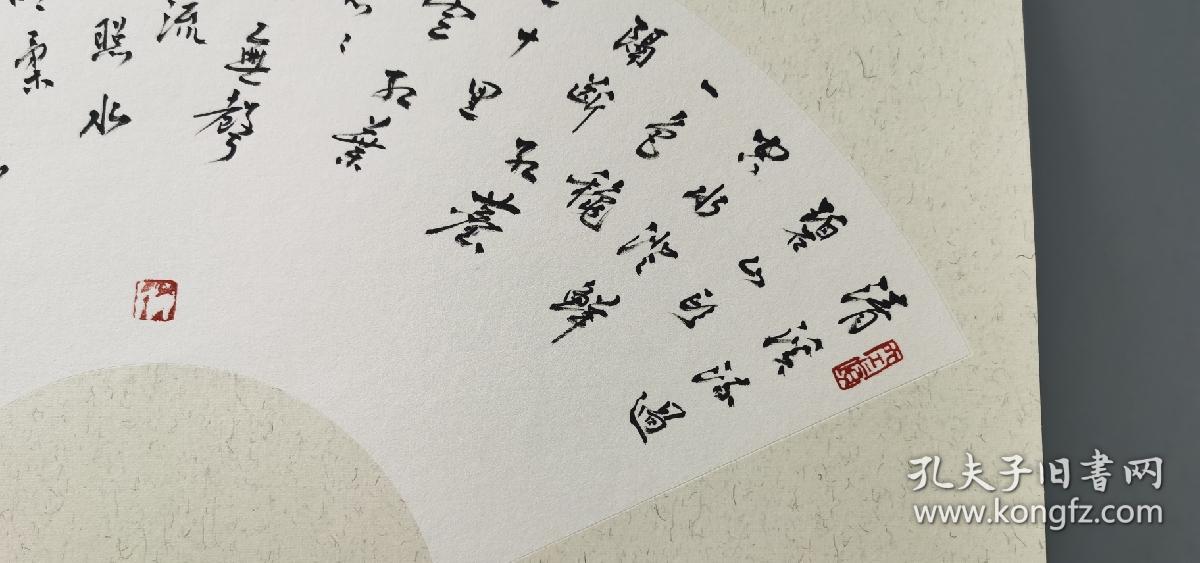 清溪流過
碧山頭
空水澄鮮
一色秋
隔断紅塵
十里
雲紅葉
無聲
流
照水
柔
孔夫子旧書网
www.kongfz.com